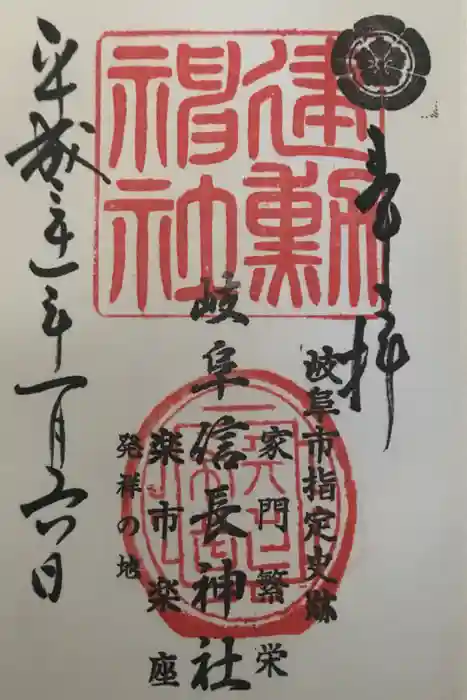 奉拝
岐阜市指定史跡
家門繁栄
岐阜信長神社
楽市楽座
発祥の地
建勲神社
平成三十一年一月六日